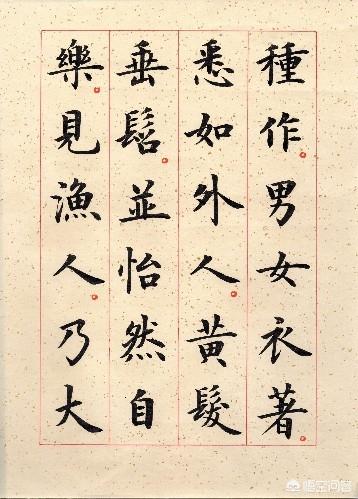 種作男女衣著
悉如外人黃髮
垂髫並怡然自
樂見漁人乃大
悟空问答